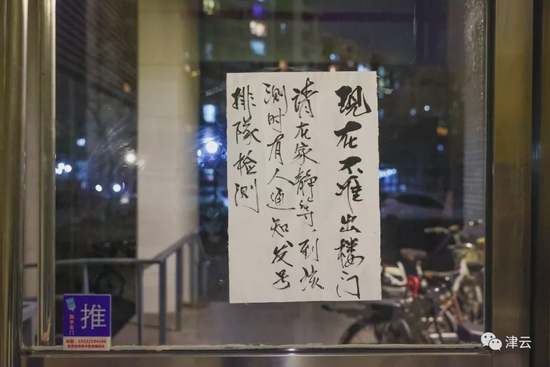 现在不准出楼门
请在家静等,到该
测时有人通知发号
排隊检测
推
津云